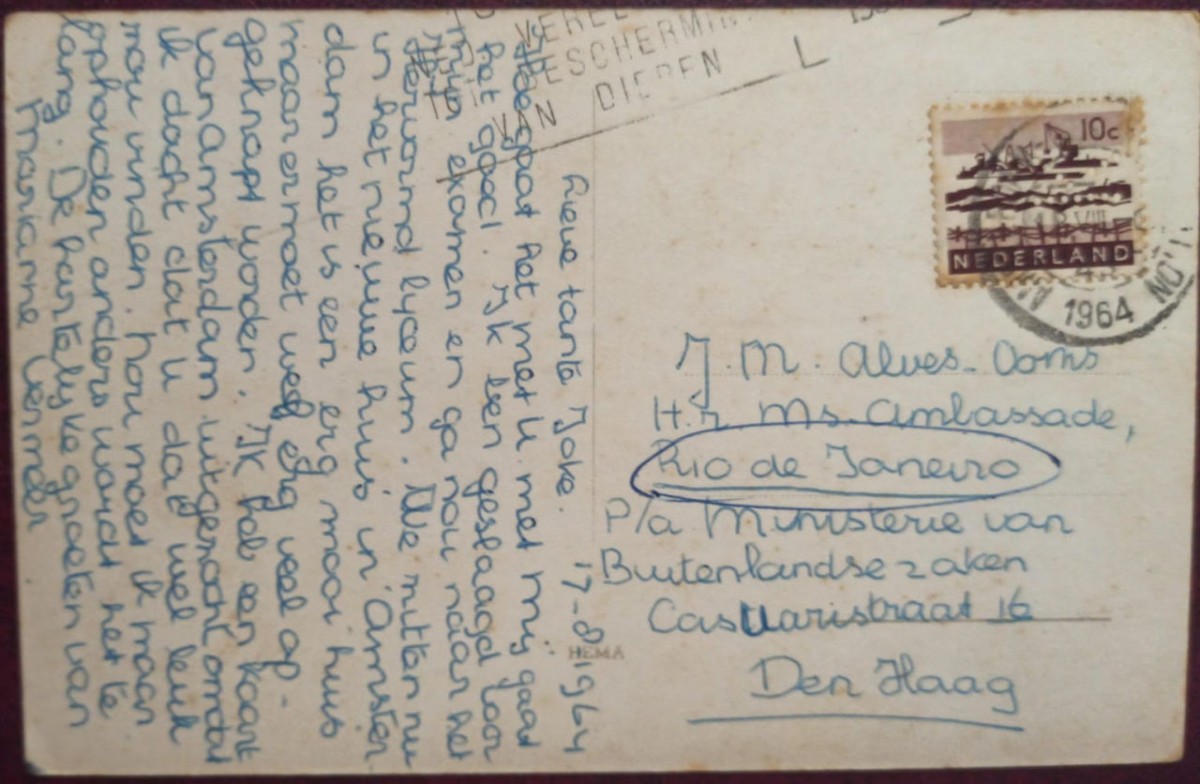 VAN DIEREN
10c
NEDERLAND
1964
Lieve tante Joke. 17-8-1964
Hoe gaat het met u met mij gaat
het goed. Ik ben geslaagd voor
mijn examen en ga nou naar het
Hervormd lyceum. We zitten nu
in het nieuwe huis in Amster
dam het is een erg mooi huis
maar er moet wel erg veel op-
geknapt worden. Ik heb een kaart
van Amsterdam uitgezocht omdat
ik dacht dat u dat wel leuk
zou vinden. Nou moet ik maar
ophouden anders wordt het te
lang. De hartelijke groeten van
Marianne Vermeer
J. M. Alves-Ooms
H.r. Ms. Ambassade,
Rio de Janeiro
P/a Ministerie van
Buitenlandse zaken
Casuaristraat 16
Den Haag
HEMA